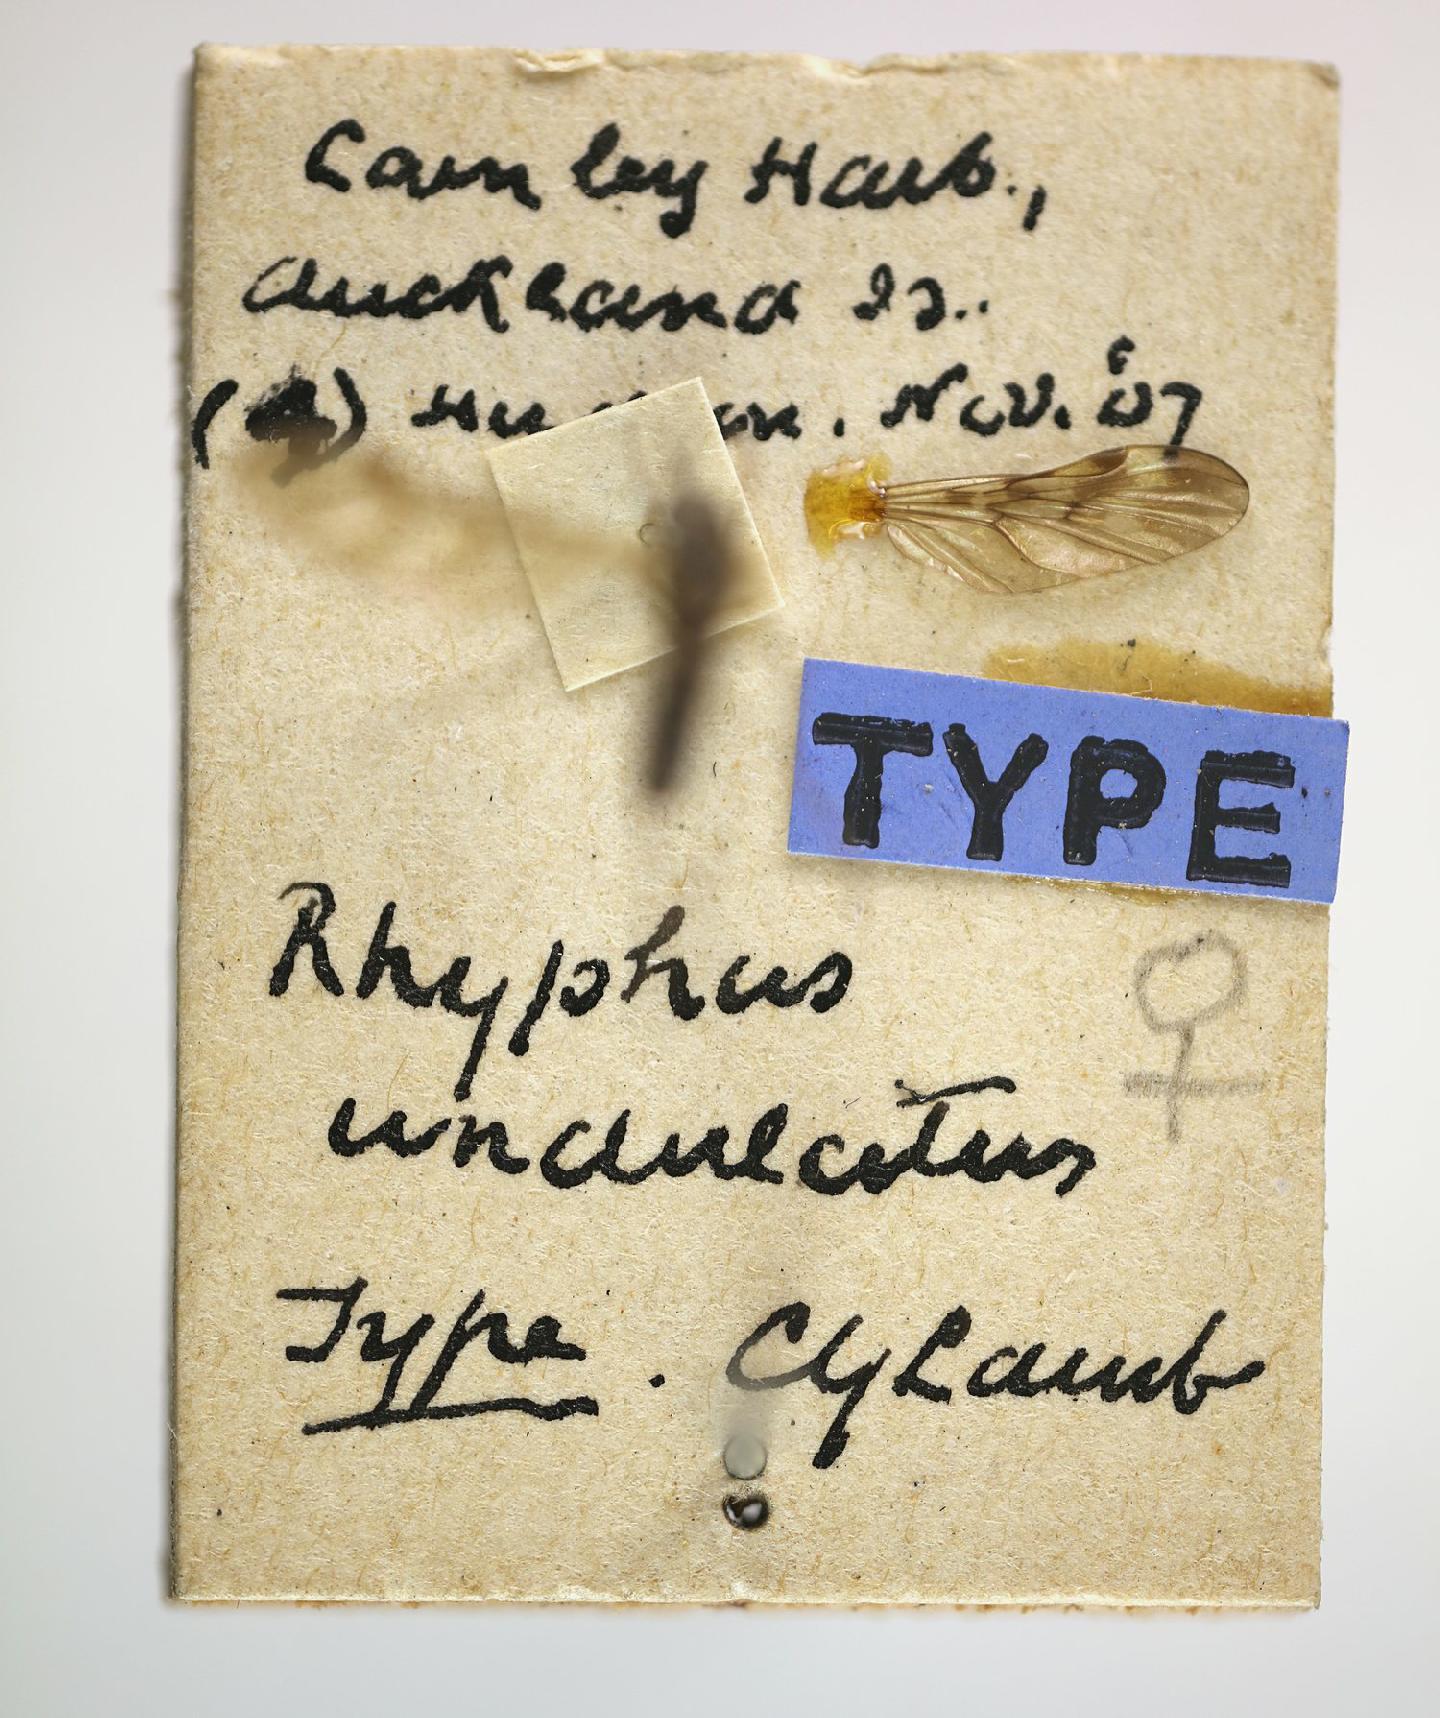 Carnley Harb.,
Auckland Is..
Nov. '07
TYPE
Rhyphus
♀
undulatus
Type. CGLamb